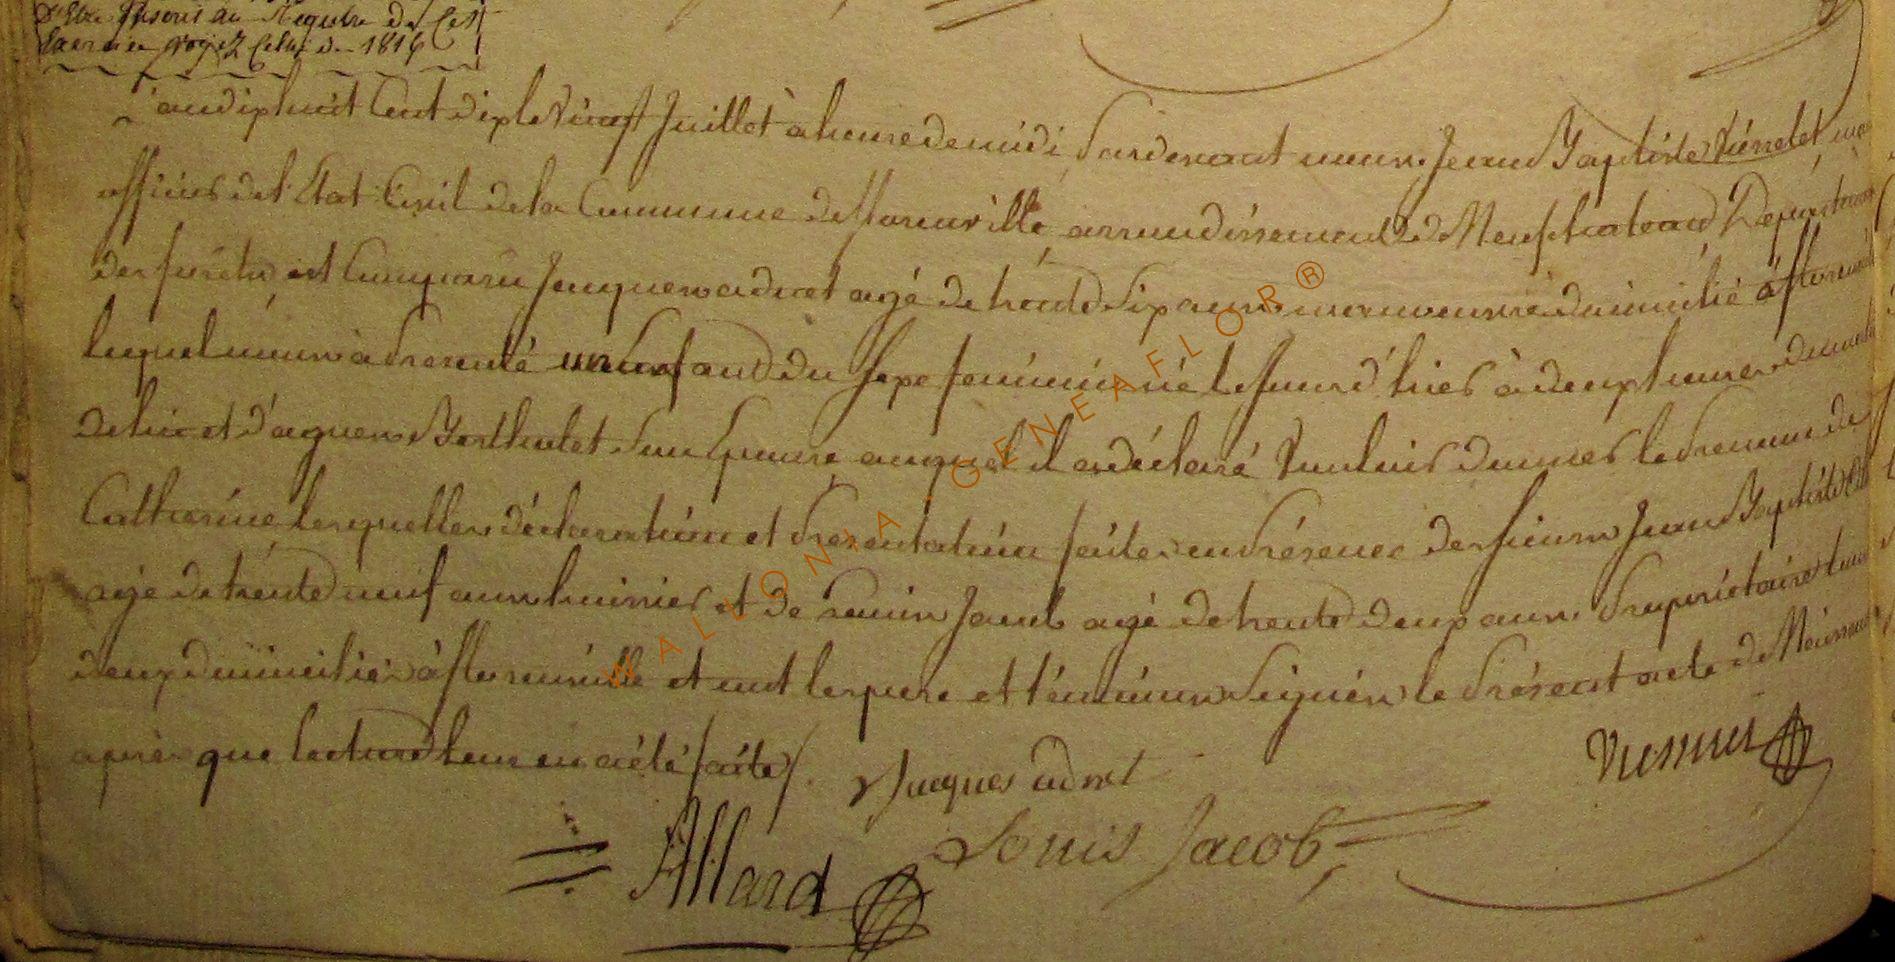 d'etre Inscris au Registre de Cette
voyez Celui de 1816
L'an dixhuit Cent dix le Vingt Juillet à heure de midi, Pardevant nous Jean Baptiste
officier de l'Etat Civil de la Commune de floremville arrondissement de Neufchateau Departement
des forets est Comparu Jacques adnet agé de trente Six ans manoeuvre domicilié à
lequel nous à presenté un Enfant du Sexe feminin né le Jour d'hier à deux heures
de lui et d'agnes Barthelet Son Epouse auquel il a déclaré Vouloir donner le prenom de
Catherine lesquelles déclaration et presentation faites en présence des sieurs Jean Baptiste
agé de trente neuf ans huissier et de Jacob agé de trente deux ans Propriétaire tous
deux domiciliés à floremville et ont les pere et témoins Signés le présent acte de Naissance
après que lecture leur en a été faite /.
Jacques adnet
Allard
Louis Jacob
WALLONIA - GENEAFLOR ®